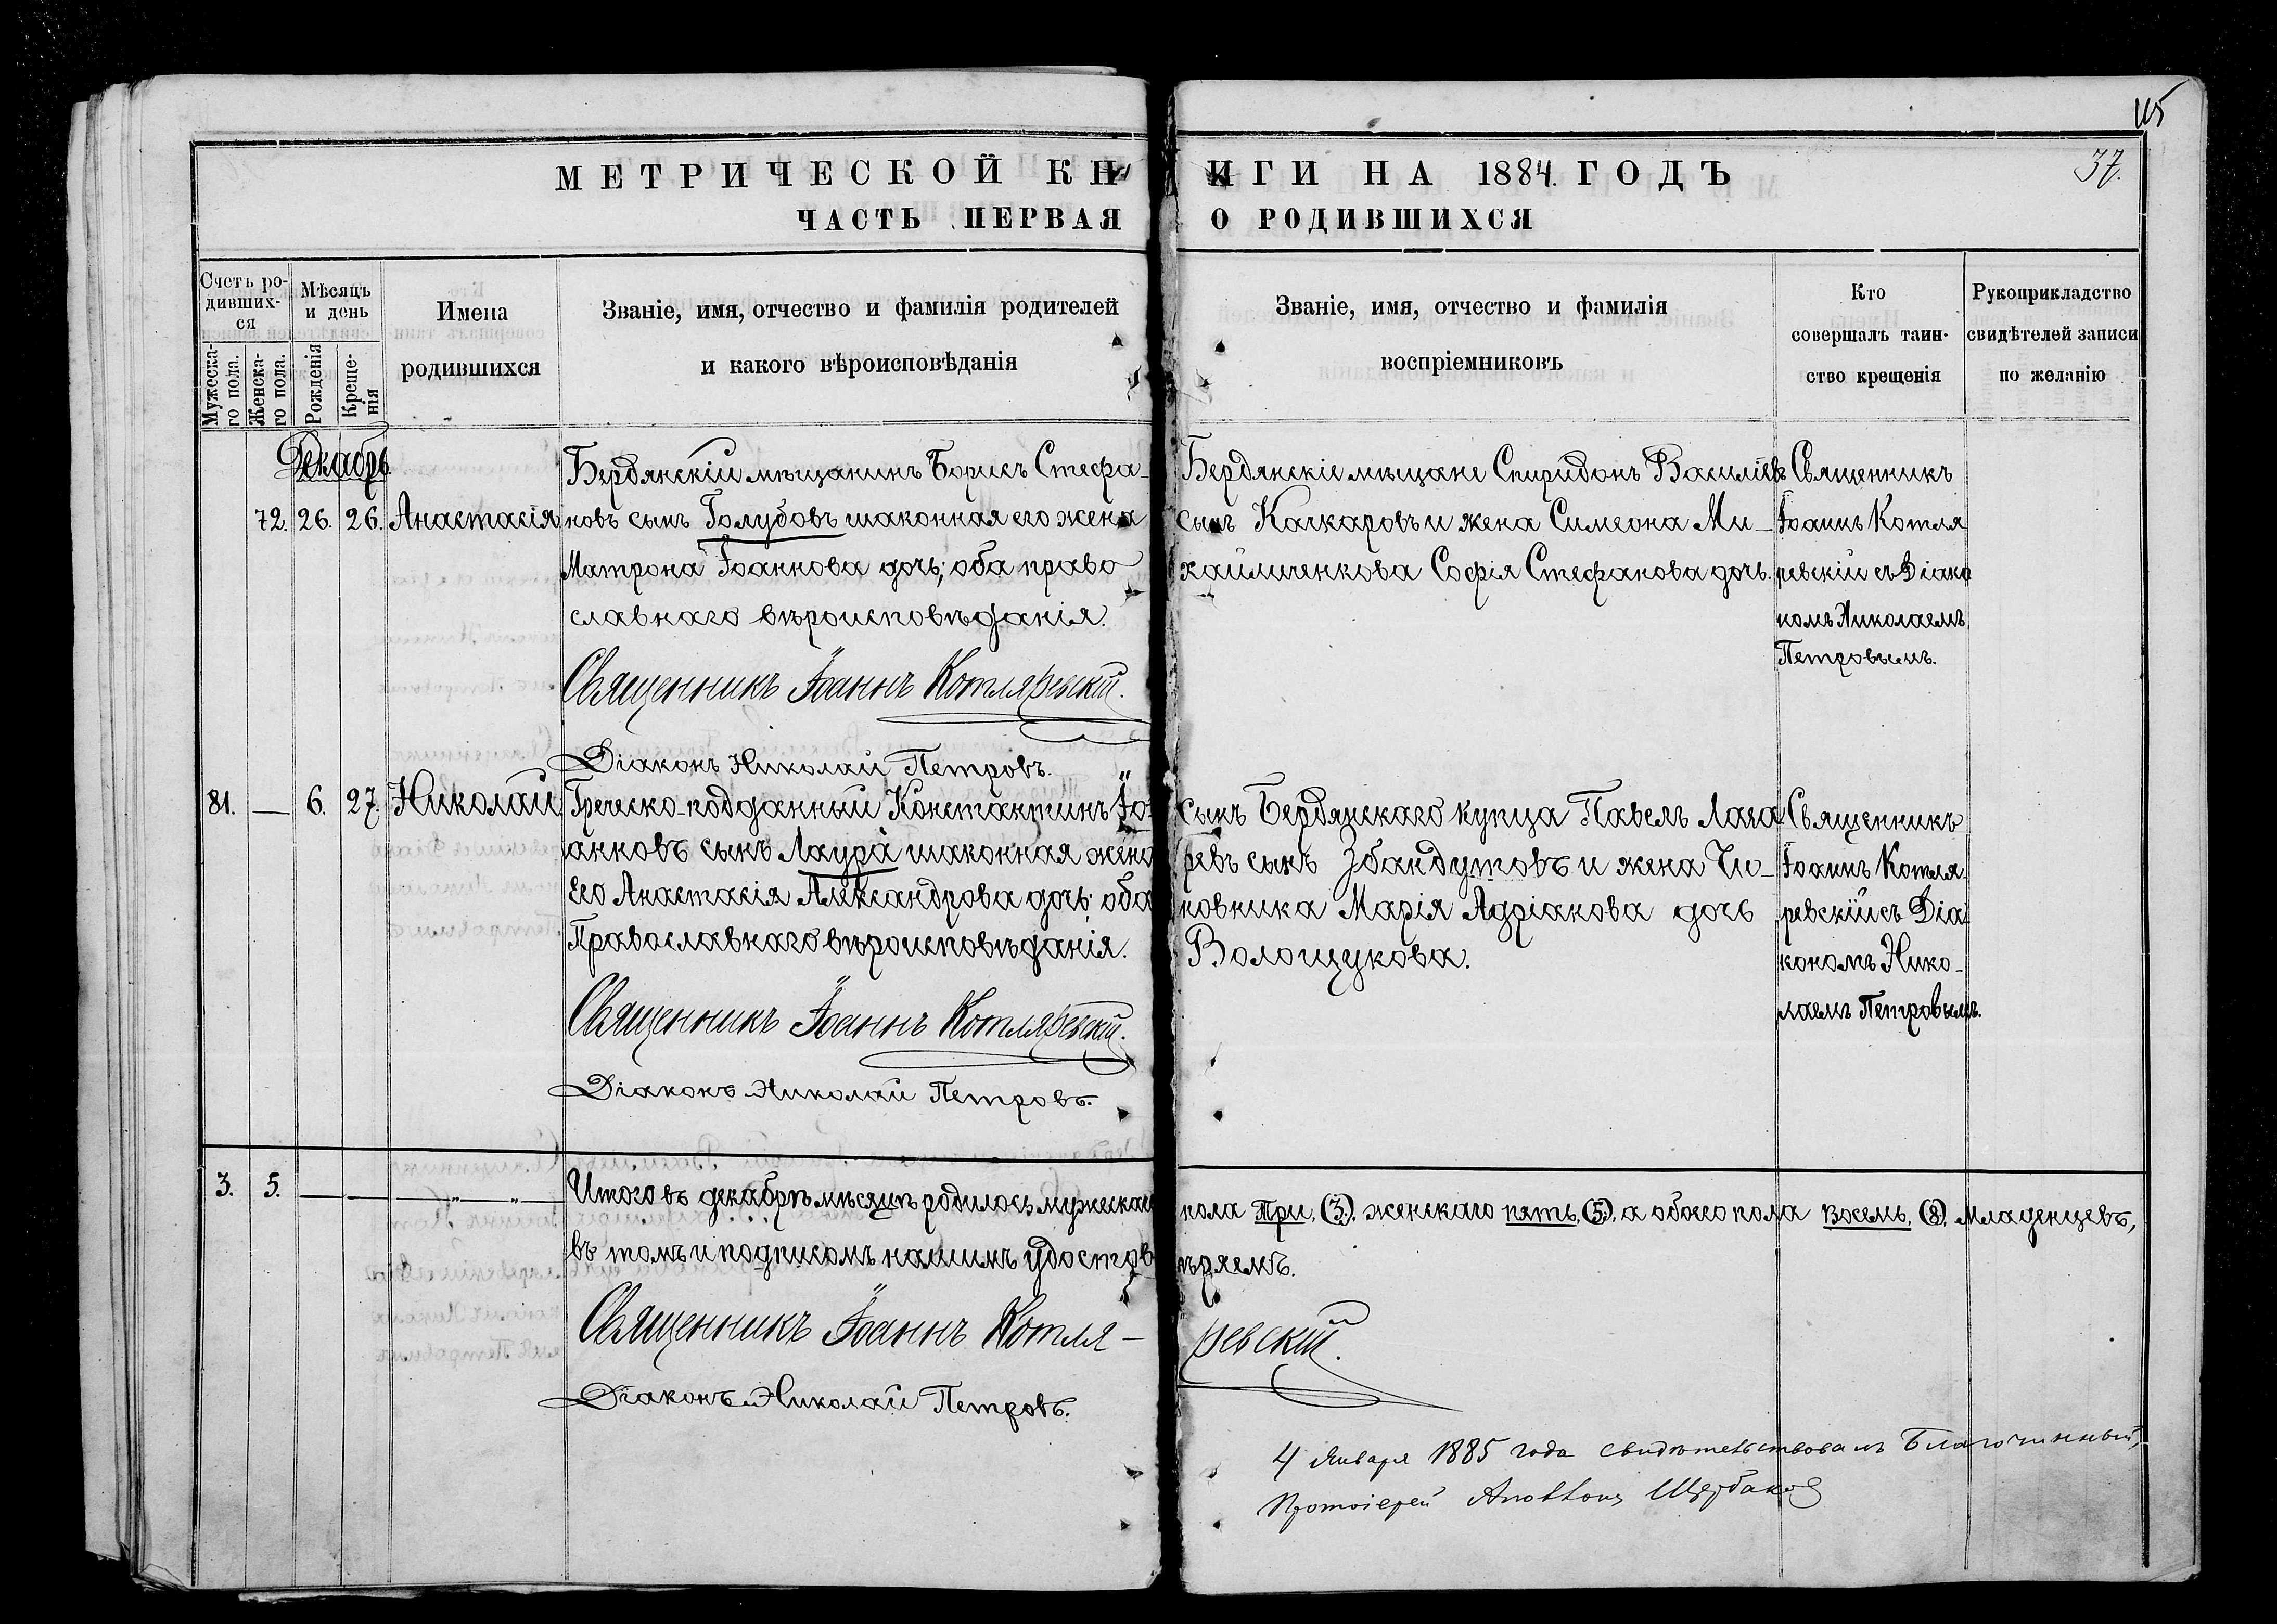 115
МЕТРИЧЕСКОЙ КНИГИ НА 1884. ГОДЪ
37.
ЧАСТЬ ПЕРВАЯ О РОДИВШИХСЯ
Счетъ ро-
дивших-
ся
Мужеска-
го пола.
Женска-
го пола.
Мѣсяцъ
и день
Рожденія
Креще-
нія
Имена
родившихся
Званіе, имя, отчество и фамилія родителей
и какого вѣроисповѣданія
Званіе, имя, отчество и фамилія
воспріемниковъ
Кто
совершалъ таин-
ство крещенія
Рукоприкладство
свидѣтелей записи
по желанію
Декабрь.
72. 26. 26. Анастасія
Бердянскій мѣщанинъ Борисъ Стефа-
новъ сынъ Голубовъ и законная его жена
Матрона Іоаннова дочь; оба право
славнаго вѣроисповѣданія.
Священникъ Іоаннъ Котляревскій.
Діаконъ Николай Петровъ.
Бердянскіе мѣщане Спиридонъ Василіевъ
сынъ Качкаровъ и жена Симеона Ми-
хайличенкова Софія Стефанова дочь.
Священникъ
Іоаннъ Котля
ревскій съ Діако
номъ Николаемъ
Петровымъ.
81. — 6. 27. Николай
Греческо-подданный Константинъ Іо-
анновъ сынъ Лаура и законная жена
его Анастасія Александрова дочь; оба
Православнаго вѣроисповѣданія.
Священникъ Іоаннъ Котляревскій.
Діаконъ Николай Петровъ.
Сынъ Бердянскаго купца Павелъ Лаза
ревъ сынъ Збандутовъ и жена Чи-
новника Марія Адріанова дочь
Волощукова.
Священникъ
Іоаннъ Котля
ревскій съ Діа
кономъ Нико-
лаемъ Петровымъ.
3. 5. Итого въ декабрѣ мѣсяцѣ родилось мужескаго пола Три, (3), женскаго пять, (5), а обоего пола восемь, (8), младенцевъ,
въ томъ и подписомъ нашимъ удостовѣряемъ.
Священникъ Іоаннъ Котля-ревскій.
Діаконъ Николай Петровъ.
4 Января 1885 года свидѣтельствовалъ Благочинный,
Протоіерей Щербаковъ